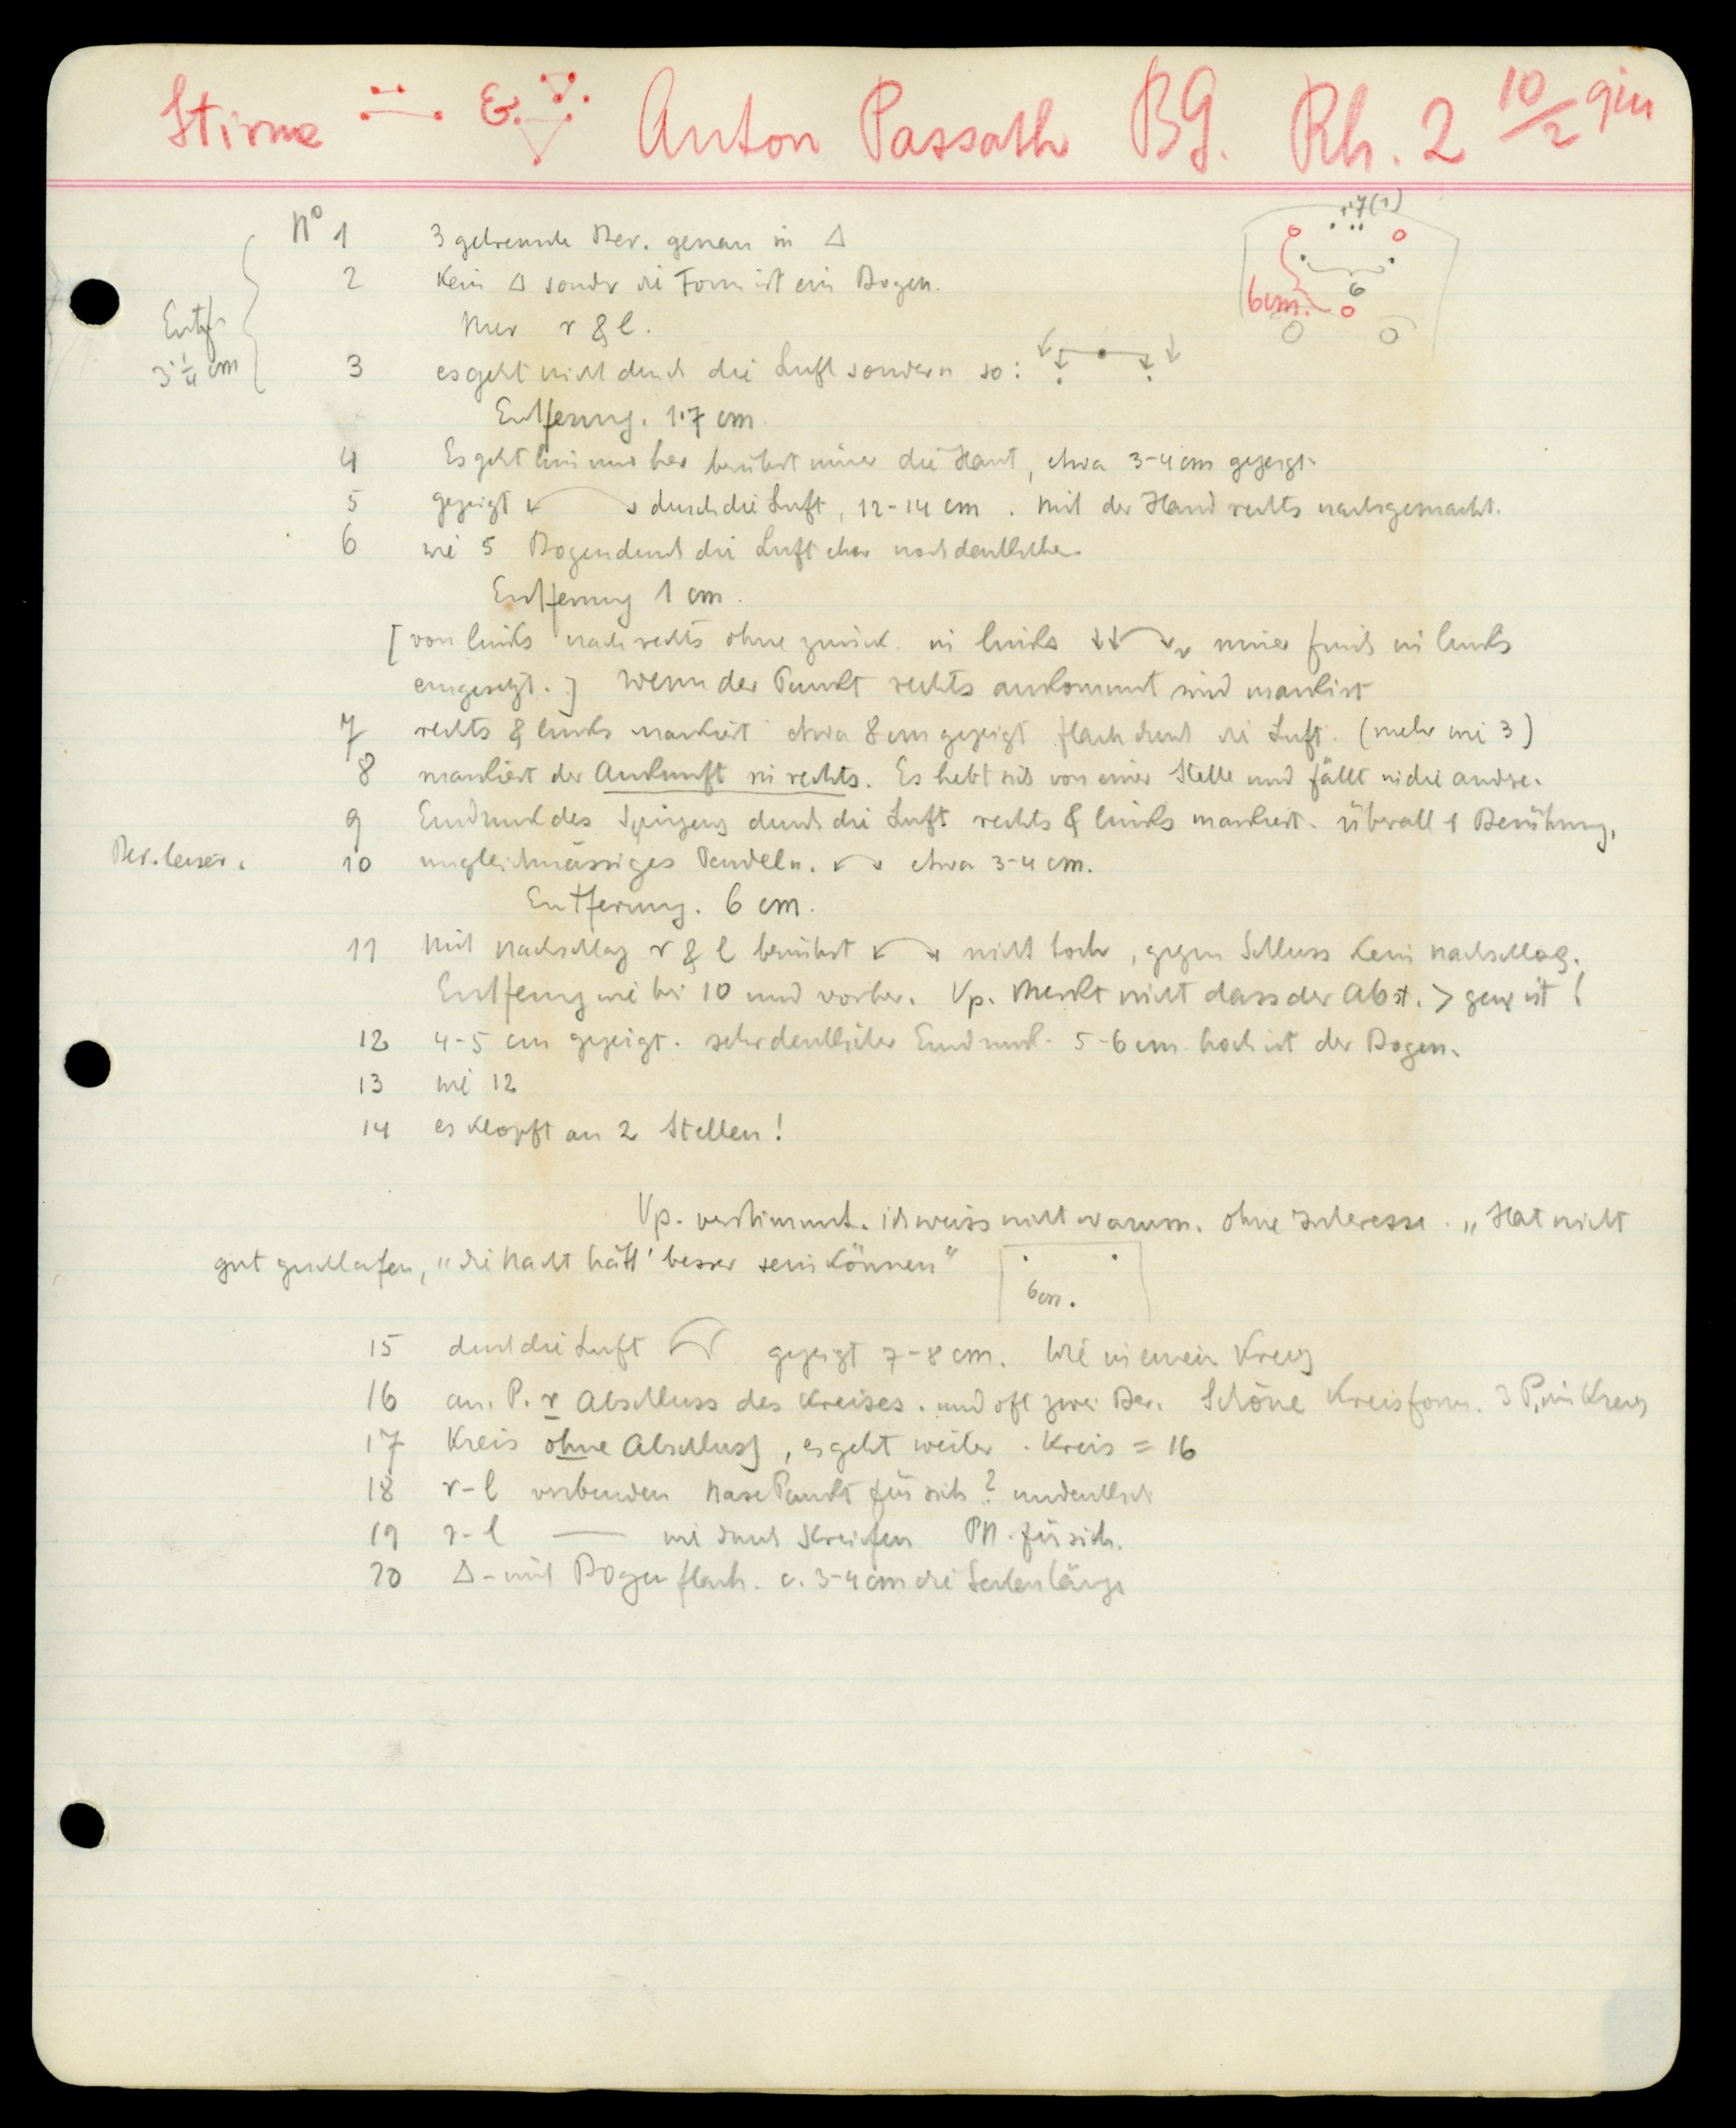 Stirne & Anton Passath BG. Rh. 2 10/2 9in
17(1)
6
6cm.
Entf.
3 1/4 cm
No 1 3 getrennte Ber. genau in Δ
2 Kein Δ sondr die Form ist ein Bogen.
Nur r & l.
3 es geht nicht durch die Luft sondern so:
Entfernung. 1.7 cm
4 Es geht hin und her berührt immer die Haut, etwa 3-4 cm gezeigt.
5 gezeigt durch die Luft, 12-14 cm. Mit der Hand rechts nachgemacht.
6 wie 5 Bogen durch die Luft eher noch deutlicher
Entfernung 1 cm.
[von links nach rechts ohne zurück. in links immer frisch in links
eingesetzt.] Wenn der Punkt rechts ankommt wird markiert
7 rechts & links markiert etwa 8 cm gezeigt flach durch die Luft. (mehr wie 3)
8 markiert der Ankunft in rechts. Es hebt sich von einer Stelle und fällt in die andre.
9 Eindruck des Springens durch die Luft rechts & links markiert. Überall 1 Berührung.
Ber. leiser. 10 ungleichmässiges Pendeln. etwa 3-4 cm.
Entfernung. 6 cm.
11 Mit Nachschlag r & l berührt nicht hoch, gegen Schluss kein Nachschlag.
Entfernung wie bei 10 und vorher. Vp. Merkt nicht dass der Abst. > gew. ist!
12 4-5 cm gezeigt. sehr deutlicher Eindruck. 5-6 cm hoch ist der Bogen.
13 wie 12
14 es klopft an 2 Stellen!
Vp. verstimmt. ich weiss nicht warum. ohne Interesse. „Hat nicht
gut geschlafen, „die Nacht hätt' besser sein können"
6cm.
15 durch die Luft gezeigt 7-8 cm. Wie in einem Kreis
16 an. P. r Abschluss des Kreises. und oft zwei Ber. Schöne Kreisform. 3 P. im Kreis
17 Kreis ohne Abschluss, es geht weiter. Kreis = 16
18 r-l verbunden Nase Punkt für sich? undeutlich
19 r-l — wie durch Streifen PN. für sich.
20 Δ - mit Bogen flach. c. 3-4 cm die Seitenlänge